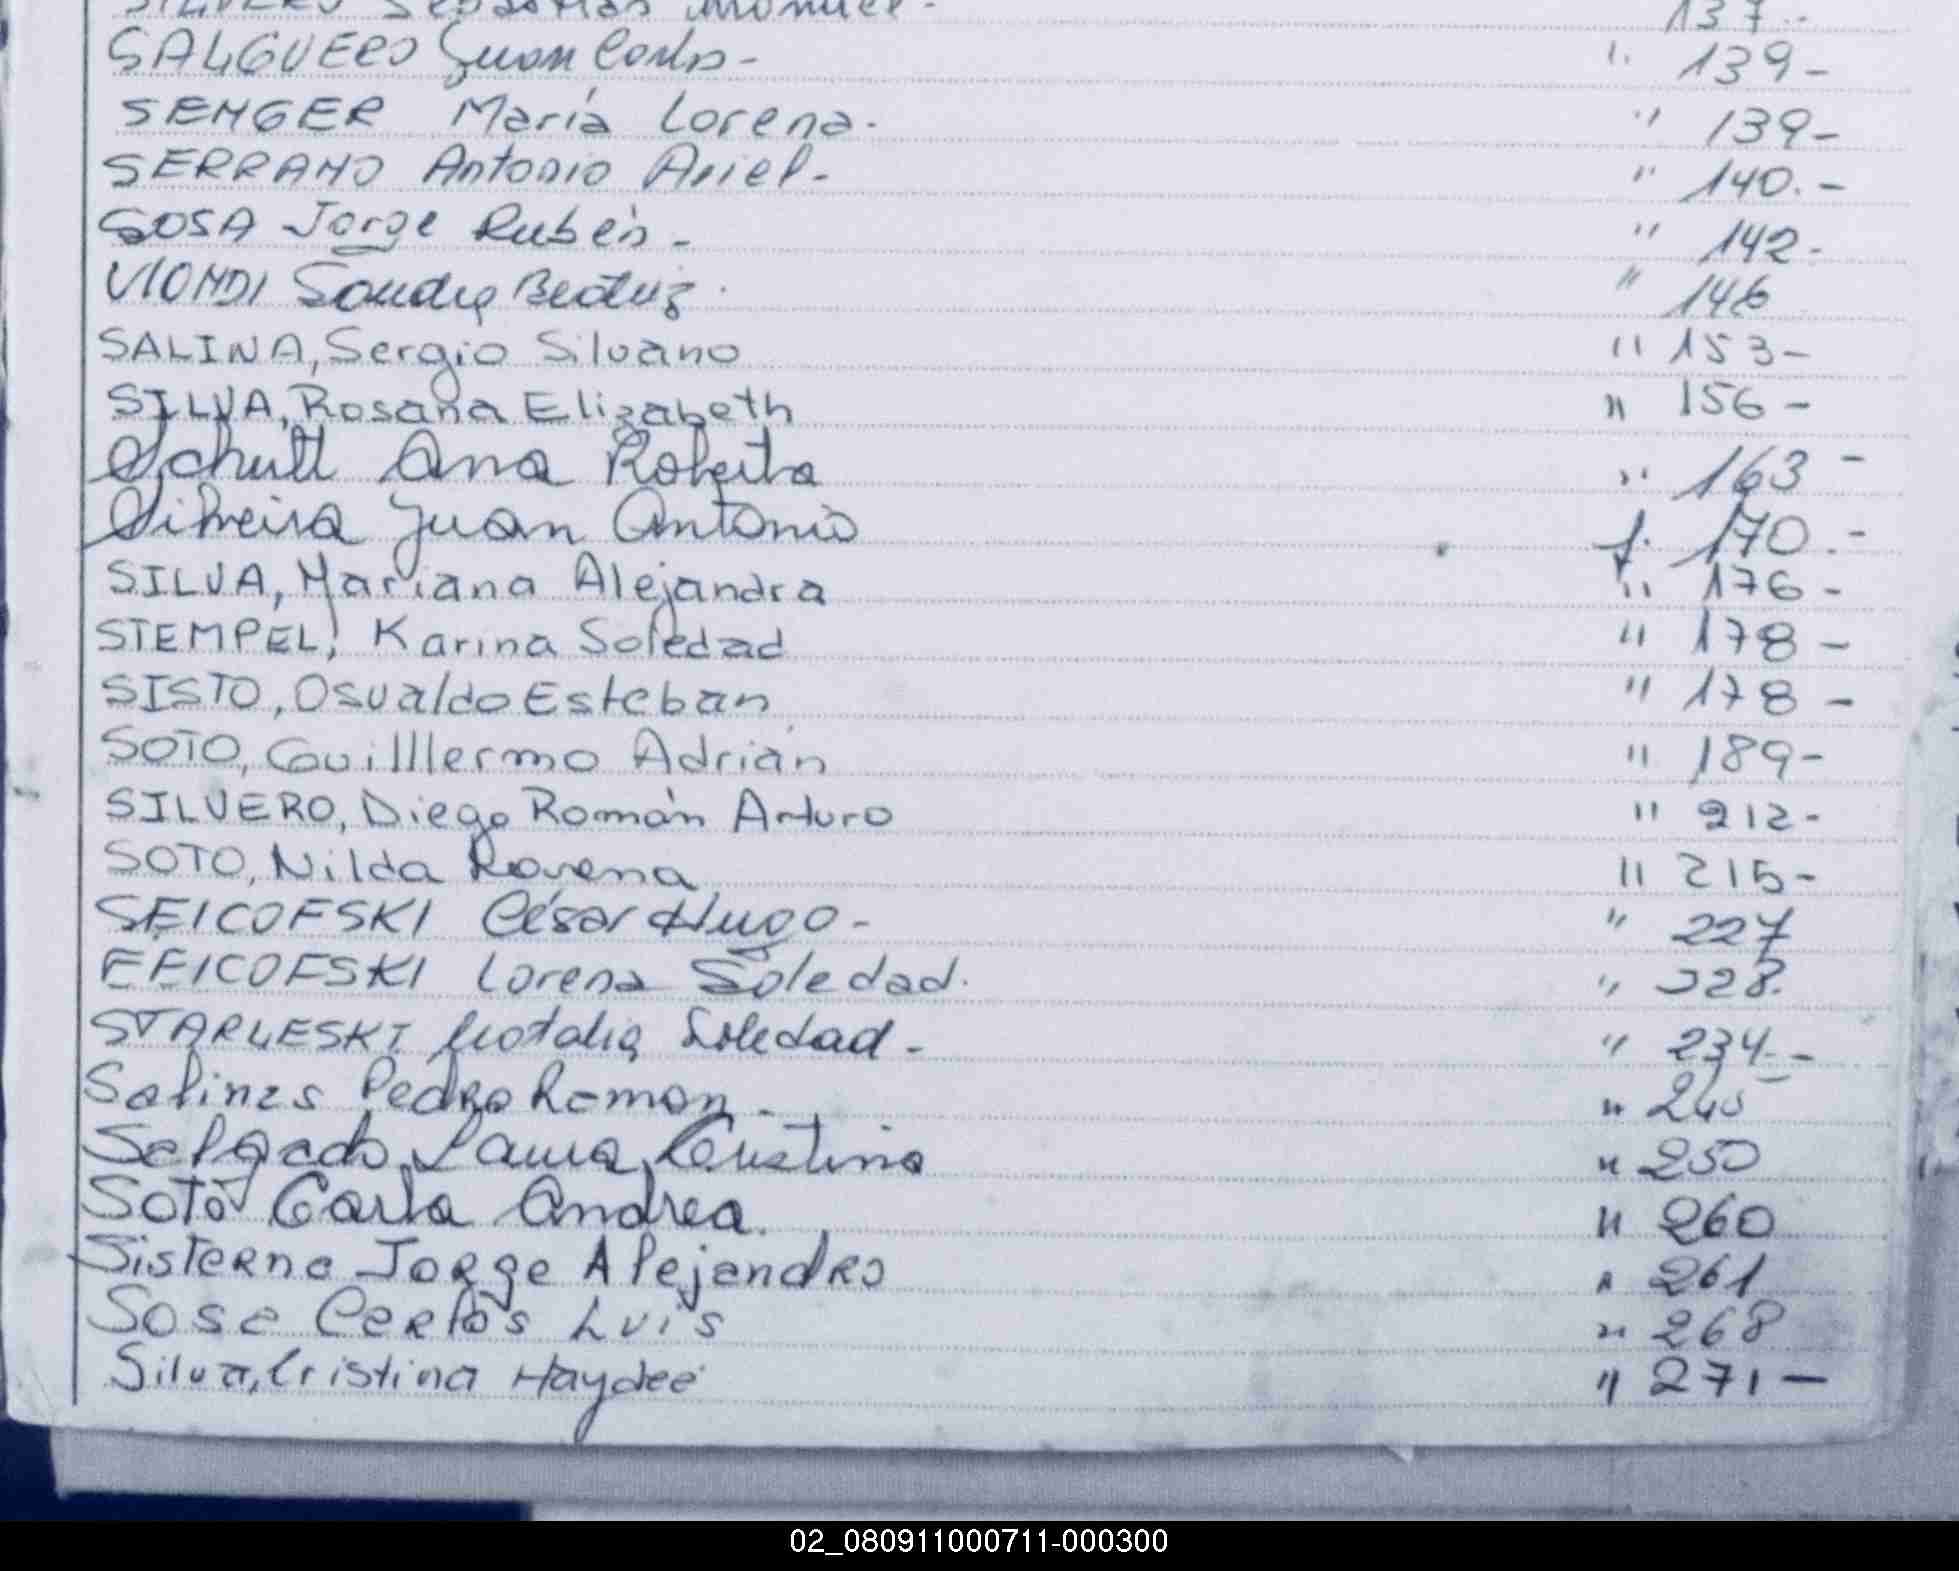 SILVERO Sebastian Manuel - 137.-
SALGUERO Juan Carlos - " 139-
SENGER María Lorena. " 139-
SERRANO Antonio Ariel - " 140.-
SOSA Jorge Rubén - " 142-
VIONDI Sandra Beatriz " 146
SALINA, Sergio Silvano " 153-
SILVA, Rosana Elizabeth " 156-
Schutt Ana Roberta " 163-
Silveira Juan Antonio f. 170.-
SILVA, Mariana Alejandra " 176-
STEMPEL, Karina Soledad " 178-
SISTO, Osvaldo Esteban " 178-
SOTO, Guilllermo Adrián " 189-
SILVERO, Diego Román Arturo " 212-
SOTO, Nilda Rovena " 215-
SEICOFSKI César Hugo - " 227
EFICOFSKI Lorena Soledad. " 228.
STARLESKI Natalia Soledad - " 234.-
Salinas Pedro Roman - " 245
Salgado, Laura Cristina " 250
Soto Carla Andrea. " 260
Sisterna Jorge Alejandro " 261
Sosa Carlos Luis " 268
Silva, Cristina Haydeé " 271-
02_080911000711-000300